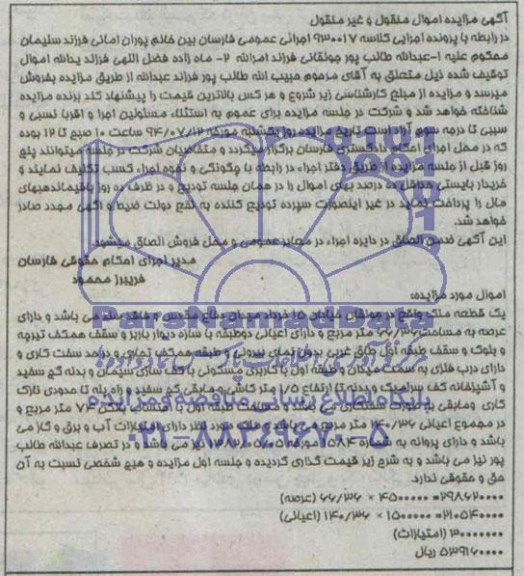 آگهی مزایده اموال منقول و غیر منقول
در رابطه با پرونده اجرایی کلاسه ۹۳۰۰۱۷ اجرائی عمومی فارسان بین خانم پوران امانی فرزند سلیمان
محکوم علیه ۱-عبدالله طالب پور جونقانی فرزند امرالله ۲- ماه زاده فضل اللهی فرزند یدالله اموال
توقیف شده ذیل متعلق به آقای مرحوم حبیب الله طالب پور فرزند عبدالله از طریق مزایده بفروش
میرسد و مزایده از مبلغ کارشناسی زیر شروع و هر کس بالاترین قیمت را پیشنهاد کند برنده مزایده
شناخته خواهد شد و شرکت در جلسه مزایده برای عموم به استثناء مسئولین اجرا و اقربا نسبی و
سببی تا درجه سوم آزاد است. تاریخ مزایده روز یکشنبه مورخه ۹۴/۰۷/۱۲ ساعت ۱۰ صبح تا ۱۲ بوده
که در محل اجرای احکام دادگستری فارسان برگزار میگردد و متقاضیان شرکت در جلسه میتوانند پنج
روز قبل از جلسه مزایده از طریق دفتر اجراء در رابطه با چگونگی و نحوه اجراء کسب تکلیف نمایند و
خریدار بایستی حداقل ده درصد بهای اموال را در همان جلسه تودیع و در ظرف ده روز باقیمانده بهای
مال را پرداخت نماید در غیر اینصورت سپرده تودیع کننده به نفع دولت ضبط و آگهی مجدد صادر
خواهد شد.
این آگهی ضمن الصاق در دایره اجراء در معابر عمومی و محل فروش الصاق میشود.
مدیر اجرای احکام حقوقی فارسان
فریبرز محمود
اموال مورد مزایده:
یک قطعه ملک واقع در جونقان خیابان ۱۵ خرداد میدان دفاع مقدس و فاقد سند می باشد و دارای
عرصه به مساحت ۶۶/۳۶ متر مربع و دارای اعیانی دوطبقه با سازه دیوار باربر و سقف همکف تیرچه
و بلوک و سقف طبقه اول طاق ضربی بدون نمای بیرونی و طبقه همکف تجاری و درحد سفت کاری و
دارای درب فلزی به سمت میدان و طبقه اول با کاربری مسکونی با کف سازی سیمان و بدنه گچ سفید
و آشپزخانه کف سرامیک و بدنه تا ارتفاع ۱/۵ متر کاشی ومابقی گچ سفید و راه پله تا حدودی نازک
کاری ومابقی به صورت سفتکاری می باشد و مساحت طبقه اول با احتساب بالکن ۷۴ متر مربع و
در مجموع اعیانی ۱۴۰/۳۶ متر مربع می باشد و در مورد فقر دارای امتیازات آب و برق و گاز می
باشد و دارای پروانه به شماره ۱۵۸۴ مورخه می باشد و در تصرف عبدالله طالب
پور نیز می باشد و به شرح زیر قیمت گذاری گردیده و جلسه اول مزایده و هیچ شخصی نسبت به آن
حق و حقوقی ندارد.
۲۹۸۶۲۰۰۰۰= ۴۵۰۰۰۰۰ × ۶۶/۳۶ (عرصه)
۲۱۰۵۴۰۰۰۰= ۱۵۰۰۰۰۰ × ۱۴۰/۳۶ (اعیانی)
۳۰۰۰۰۰۰۰ (امتیازات)
۵۳۹۱۶۰۰۰۰ ریال
ParsNamadData
پایگاه اطلاع رسانی مناقصه و مزایده
۰۲۱-۸۸۳۴۹۶۷۰-۵